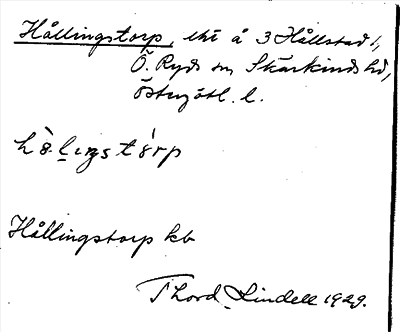 Hållingstorp, lht å 3 Hållstad 1,
Ö. Ryds sn Skärkinds hd,
Östergötl. l.
hå̀lıŋstɔ́rp
Hållingstorp kb
Thord Lindell 1929.